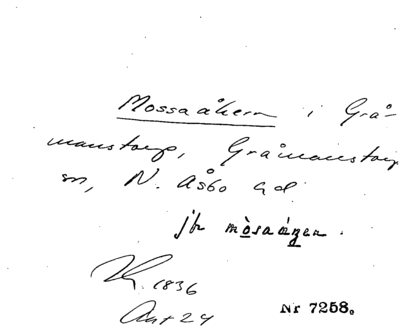 Mossaåkern i Grå-
manstorp, Gråmanstorp
sn, N. Åsbo hd.
jfr mòsaágen.
K. 1836
Akt 24
Nr 7258.